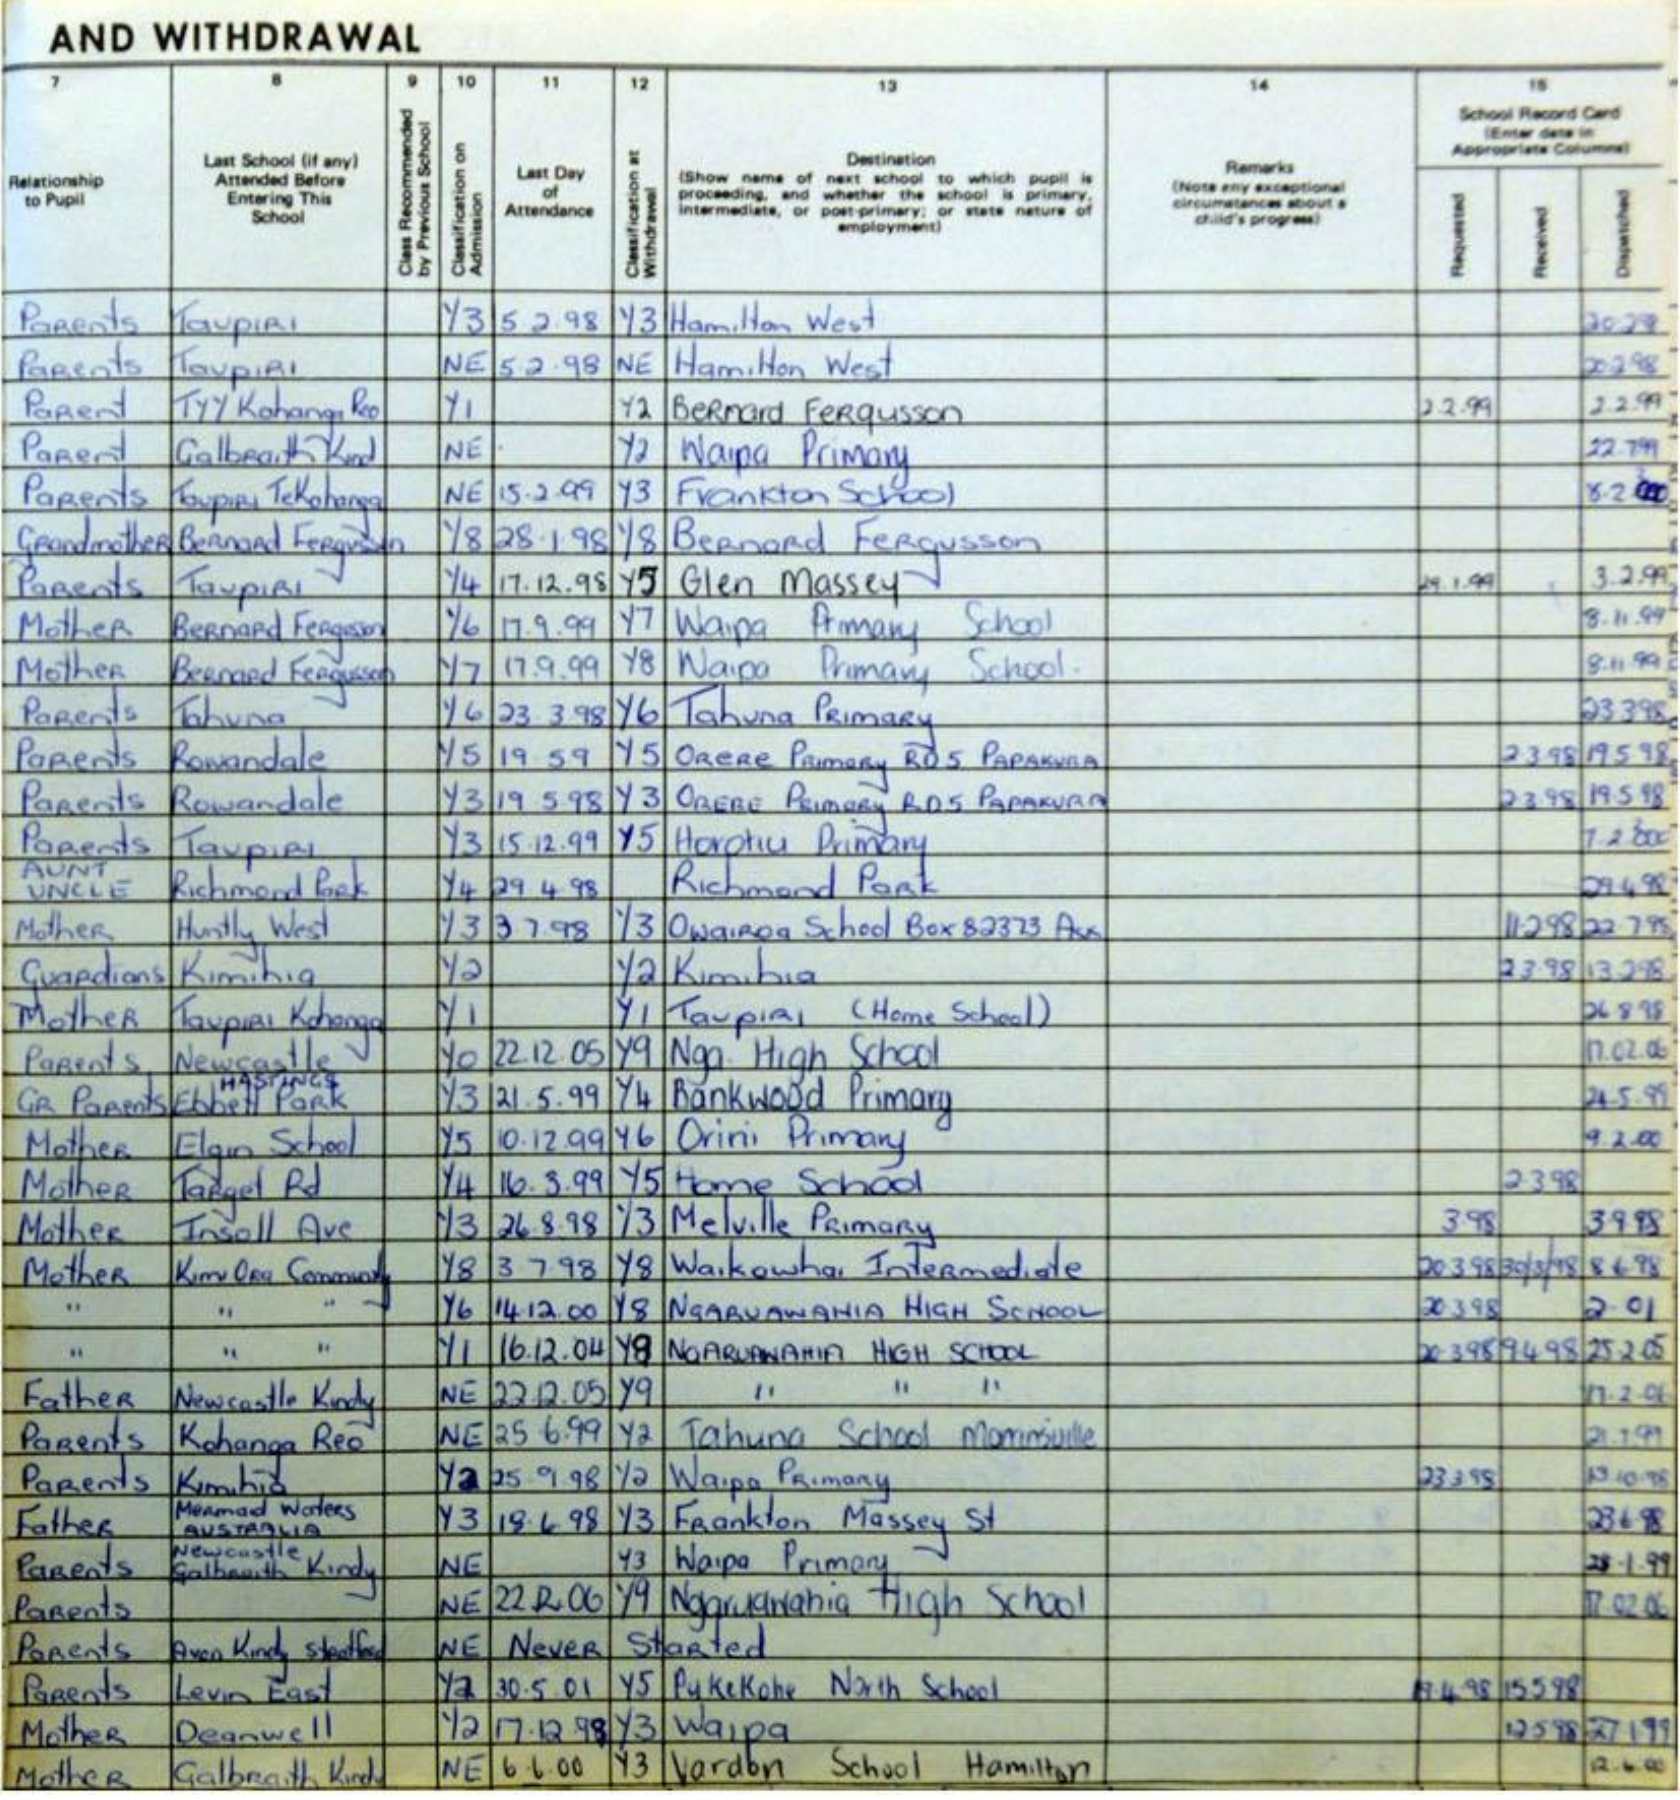 AND WITHDRAWAL
7 8 9 10 11 12 13 14 15
Relationship to Pupil
Last School (if any) Attended Before Entering This School
Class Recommended by Previous School
Classification on Admission
Last Day of Attendance
Classification at Withdrawal
Destination
(Show name of next school to which pupil is proceeding, and whether the school is primary, intermediate, or post-primary; or state nature of employment)
Remarks
(Note any exceptional circumstances about a child's progress)
School Record Card
(Enter date in Appropriate Columns)
Requested
Received
Dispatched
Parents Taupiri Y3 5.2.98 Y3 Hamilton West
Parents Taupiri NE 5.2.98 NE Hamilton West 20.2.98
Parent TYY Kohanga Reo Y1 Y2 Bernard Fergusson 2.2.99 2.2.99
Parent Galbraith Kind NE Y2 Waipa Primary 22.7.99
Parents Taupiri TeKohanga NE 15.2.99 Y3 Frankton School
Grandmother Bernard Fergusson Y8 28.1.98 Y8 Bernard Fergusson
Parents Taupiri Y4 17.12.98 Y5 Glen Massey 29.1.99 3.2.99
Mother Bernard Fergusson Y6 17.9.99 Y7 Waipa Primary School 8.11.99
Mother Bernard Fergusson Y7 17.9.99 Y8 Waipa Primary School. 8.11.99
Parents Tahuna Y6 23.3.98 Y6 Tahuna Primary 23 3 98
Parents Rowandale Y5 19 59 Y5 Orere Primary RD 5 Papakura 2 3 98 19 5 98
Parents Rowandale Y3 19 5 98 Y3 Orere Primary R.D.5 Papakura 2 3 98 19 5 98
Parents Taupiri Y3 15.12.99 Y5 Horotiu Primary
AUNT UNCLE Richmond Park Y4 29 4 98 Richmond Park 29 4 98
Mother Huntly West Y3 3 7.98 Y3 Owairoa School Box 82373 Auk 11.2 98 22 7 98
Guardians Kimihia Y2 Y2 Kimihia 2 3 98 13 2 98
Mother Taupiri Kohanga Y1 Y1 Taupiri (Home School) 26 8 98
Parents Newcastle Y0 22.12.05 Y9 Nga. High School 17.02.06
GR Parents HASTINGS Ebbett Park Y3 21.5.99 Y4 Bankwood Primary 24.5.99
Mother Elgin School Y5 10.12.99 Y6 Orini Primary 9.2.00
Mother Target Rd Y4 16.3.99 Y5 Home School 2 3 98
Mother Insoll Ave Y3 26.8.98 Y3 Melville Primary 3 98 3 9 98
Mother Kimi Ora Community Y8 3 7 98 Y8 Waikowhai Intermediate 20 3 98 30/3/98 8 6 98
" " " Y6 14.12.00 Y8 NGARUAWAHIA HIGH SCHOOL 20 3 98 2 01
" " " Y1 16.12.04 Y8 NGARUAWAHIA HIGH SCHOOL 20 3 98 9 4 98 25 2 05
Father Newcastle Kindy NE 22.12.05 Y9 " " " 17.2.06
Parents Kohanga Reo NE 25 6.99 Y2 Tahuna School Morrinsville 21.7.99
Parents Kimihia Y2 25.9.98 Y2 Waipa Primary 23 3 98
Father Mermaid Waters AUSTRALIA Y3 18.6 98 Y3 Frankton Massey St 23 6 98
Parents Newcastle Galbraith Kindy NE Y3 Waipa Primary 28.1.99
Parents NE 22 12 06 Y9 Ngaruawahia High School 17.02.06
Parents Avon Kindy Stratford NE Never Started
Parents Levin East Y2 30.5.01 Y5 Pukekohe North School 15 5 98
Mother Deanwell Y2 17.12.98 Y3 Waipa 12 5 98 27 1 99
Mother Galbraith Kindy NE 6.6.00 Y3 Vardon School Hamilton 12.6.00